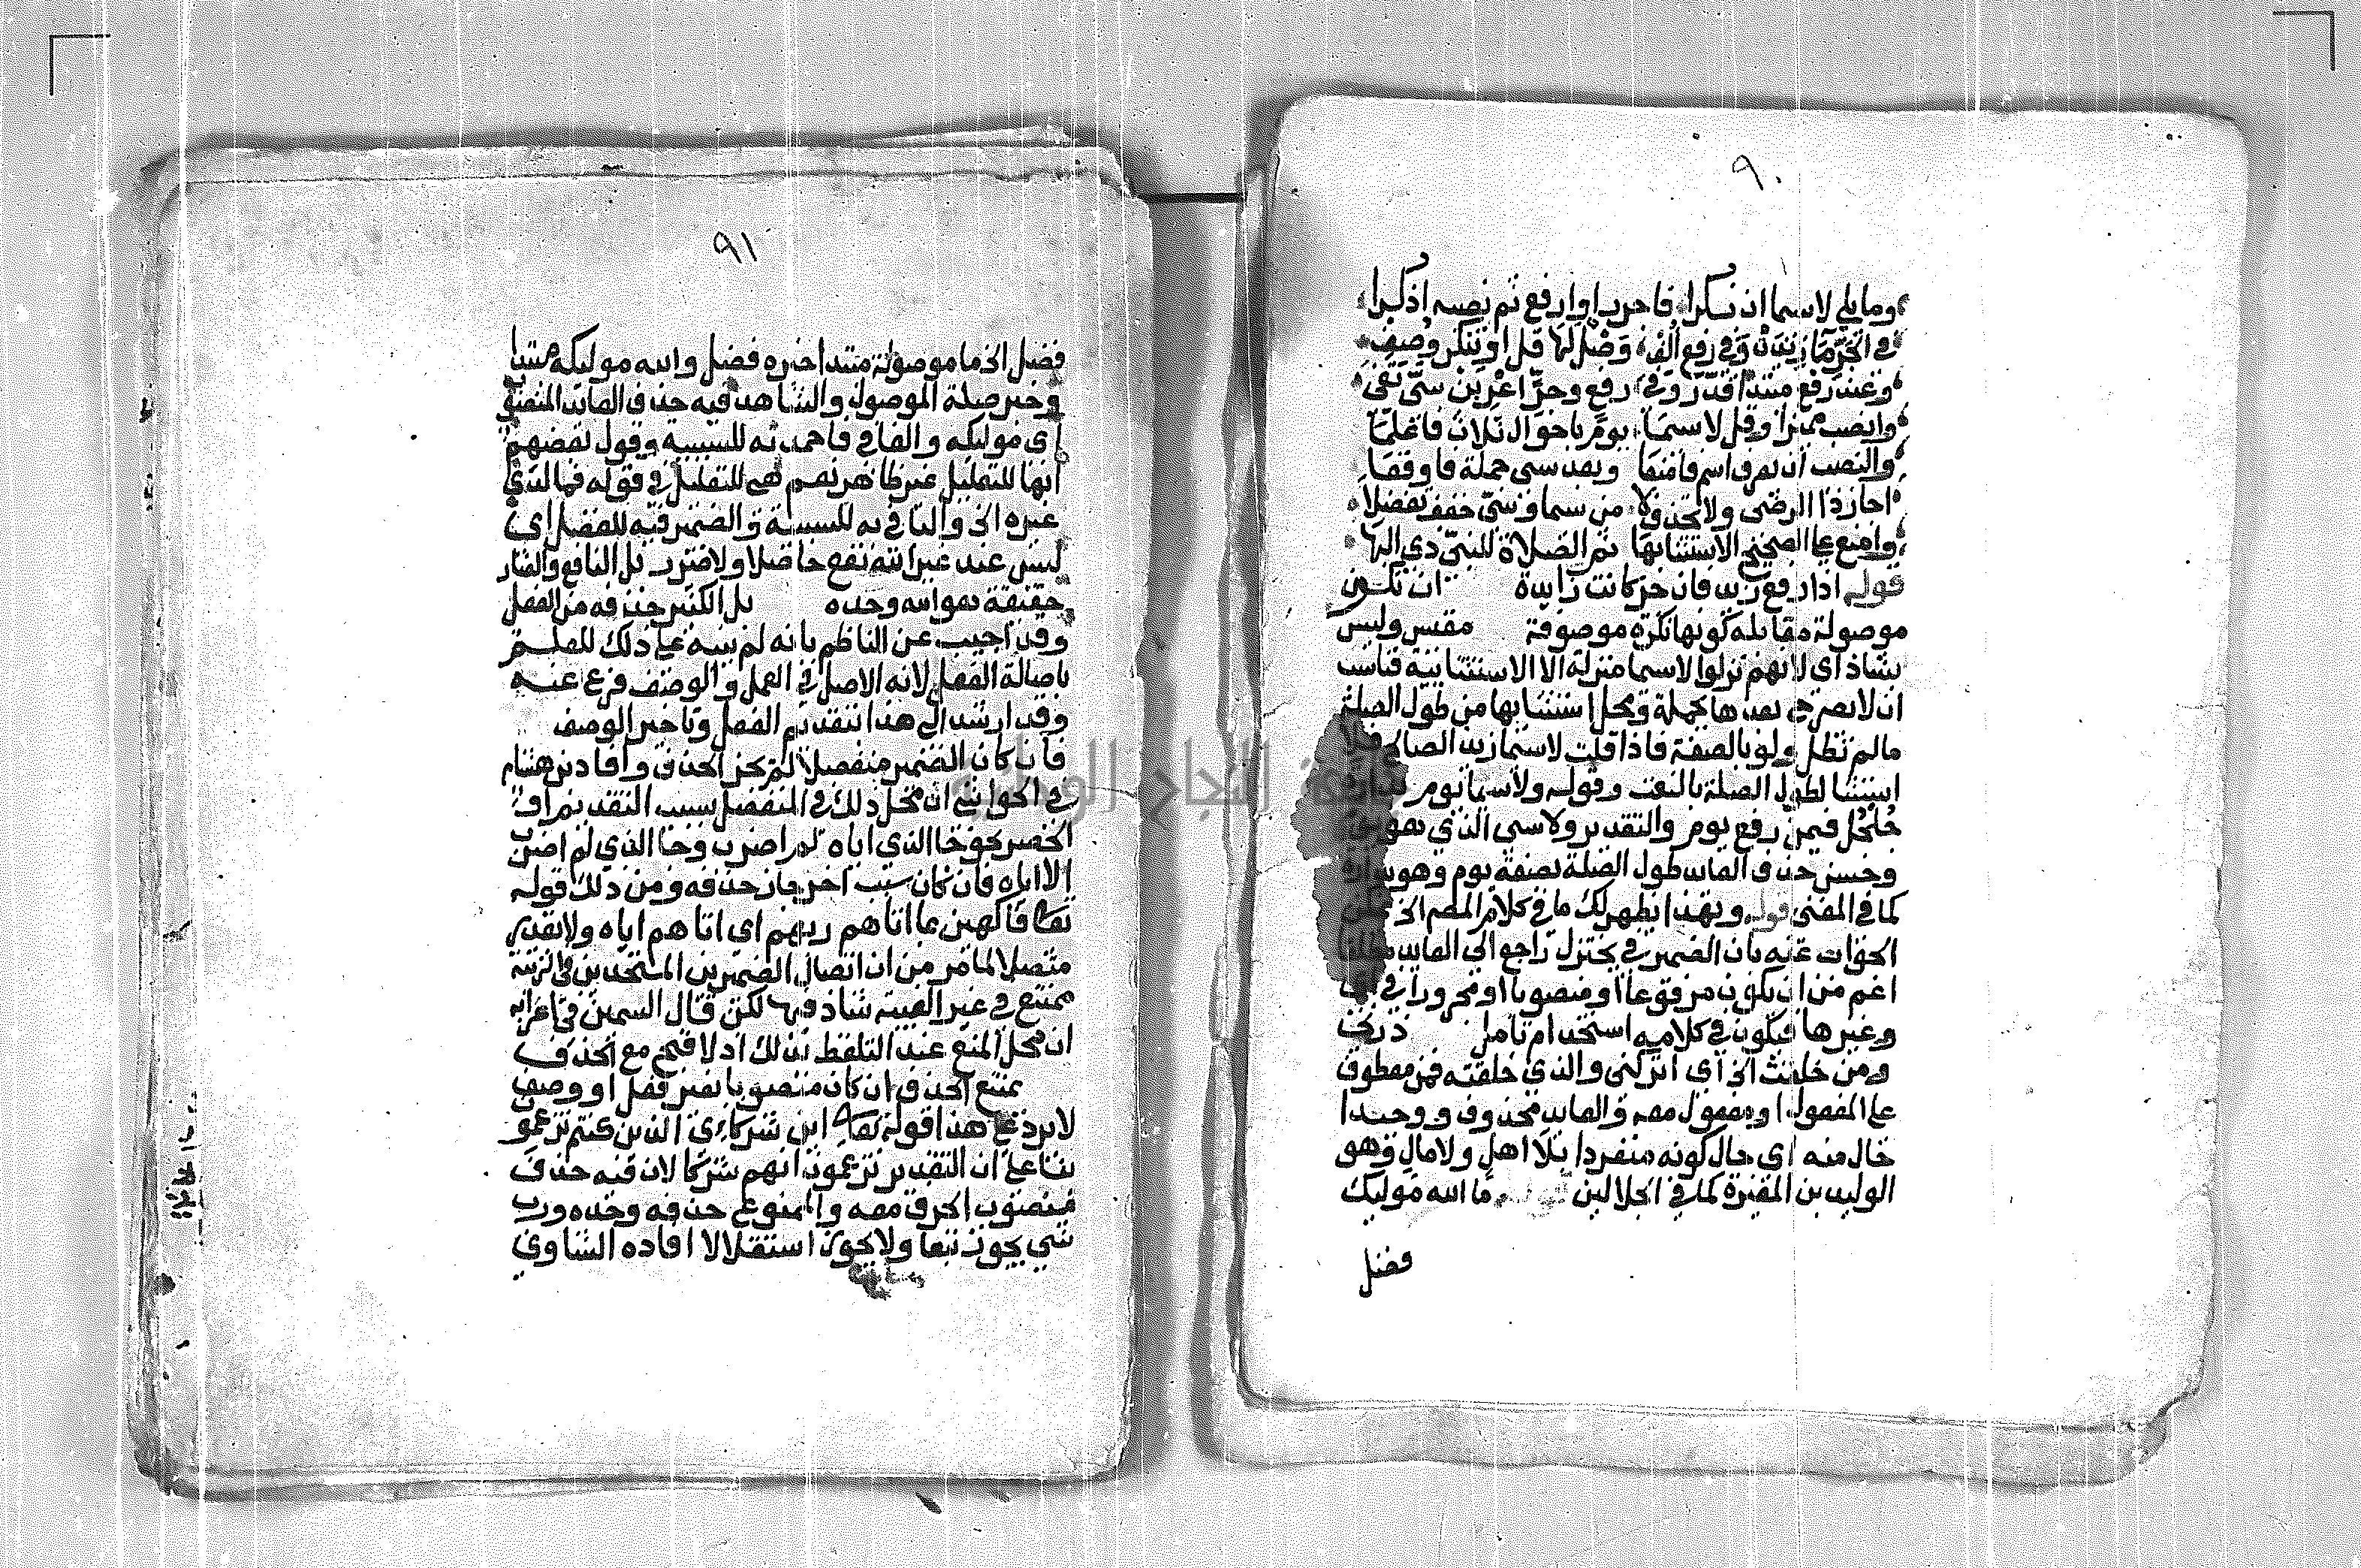 ٩٠
وما يلي لاسيما ان نكرا فاجرر او ارفع ثم نصبه اذكرا
في الجر ما زيدت وفي رفع الف وصل لها قل او تنكر وصف
وعند رفع مبتدا قدر وفي رفع وجر اعربن سي تفي
وانصب مميزا وقل لاسيما يوم باحوال ثلاث فاعلما
والنصب ان يعرف اسم فامنعا وبعد سي جملة فاوقعا
اجاز ذا الرضى ولا تحذف لا من سيما وسي خفف تفضلا
وامنع على الصحيح الاستثنا بها ثم الصلاة للنبي ذي البها
قوله اذا رفع زيد فان جر كانت زايدة ان تكون
موصولة مقابله كونها نكرة موصوفة مقيس وليس
بشاذ اي لانهم نزلوا لاسيما منزلة الا الاستثنايية فناسب
ان لا يصرح بعدها بجملة ومحل استثنايها من طول الصلة
مالم تطل ولو بالصفة فاذا قلت لاسيما زيد الصالح فلا
استثنا لطول الصلة بالنعت وقوله ولاسيما يوم
جلجل فيمن رفع يوم والتقدير ولا سي الذي هو يوم
وحسن حذف العايد طول الصلة بصفة يوم وهو بدارة
كما في المغنى قوله وبهذا يظهر لك ما في كلام المص الخ
الجواب عنه بان الضمير في يختزل راجع الى العايد مطلقا
اعم من ان يكون مرفوعا او منصوبا او مجرورا في
وغيرها فيكون في كلاميه استخدام تامل ذرني
ومن خلقت الخ اي اتركني والذي خلقته فمن معطوف
على المفعول او مفعول معه والعايد محذوف ووحيدا
حال منه اي حال كونه منفردا بلا اهل ولا مال وهو
الوليد بن المغيرة كما في الجلالين ما الله موليك
فضل
٩١
فضل الخ ما موصولة مبتدا خبره فضل والله موليكه مبتدا
وخبر صلة الموصول والشاهد فيه حذف العايد المنصوب
اي موليكه والفا في فاحمدنه للسببية وقول بعضهم
انها للتعليل غير ظاهر نعم هي للتعليل في قوله فما لذي
غيره الخ والبا في به للسببية والضمير فيه للفضل اي
ليس عند غير الله نفع حاصلا ولا ضرر بل النافع والضار
حقيقة هو الله وحده بل الكثير حذفه من الفعل
وقد اجيب عن الناظم بانه لم ينبه على ذلك للعلم
باصالة الفعل لانه الاصل في العمل والوصف فرع عنه
وقد ارشد الى هذا بتقديم الفعل وتاخير الوصف
فان كان الضمير منفصلا لم يجز الحذف وافاد بن هشام
في الحواشي ان محل ذلك في المنفصل بسبب التقديم او
الحصر نحو جا الذي اياه لم اضرب وجا الذي لم اضرب
الا اياه فان كان سبب اخر جاز حذفه ومن ذلك قوله
تعالى فاكهين بما اتاهم ربهم اي اتاهم اياه ولا يقدر
متصلا لما مر من ان اتصال الضميرين المتحدين في الرتبة
ممتنع في غير الغيبة شاذ فيها لكن قال السمين في اعرابه
ان محل المنع عند التلفظ بذلك اذ لا قبح مع الحذف
يمتنع الحذف ان كان منصوبا بغير فعل او وصف
لا يرد على هذا قوله تعالى اين شركاءي الذين كنتم تزعمون
بنا على ان التقدير تزعمون انهم شركا لان فيه حذف
منصوب الحرف معه والممنوع حذفه وحده ورب
شي يجوز تبعا ولا يجوز استقلالا افاده الشاوي